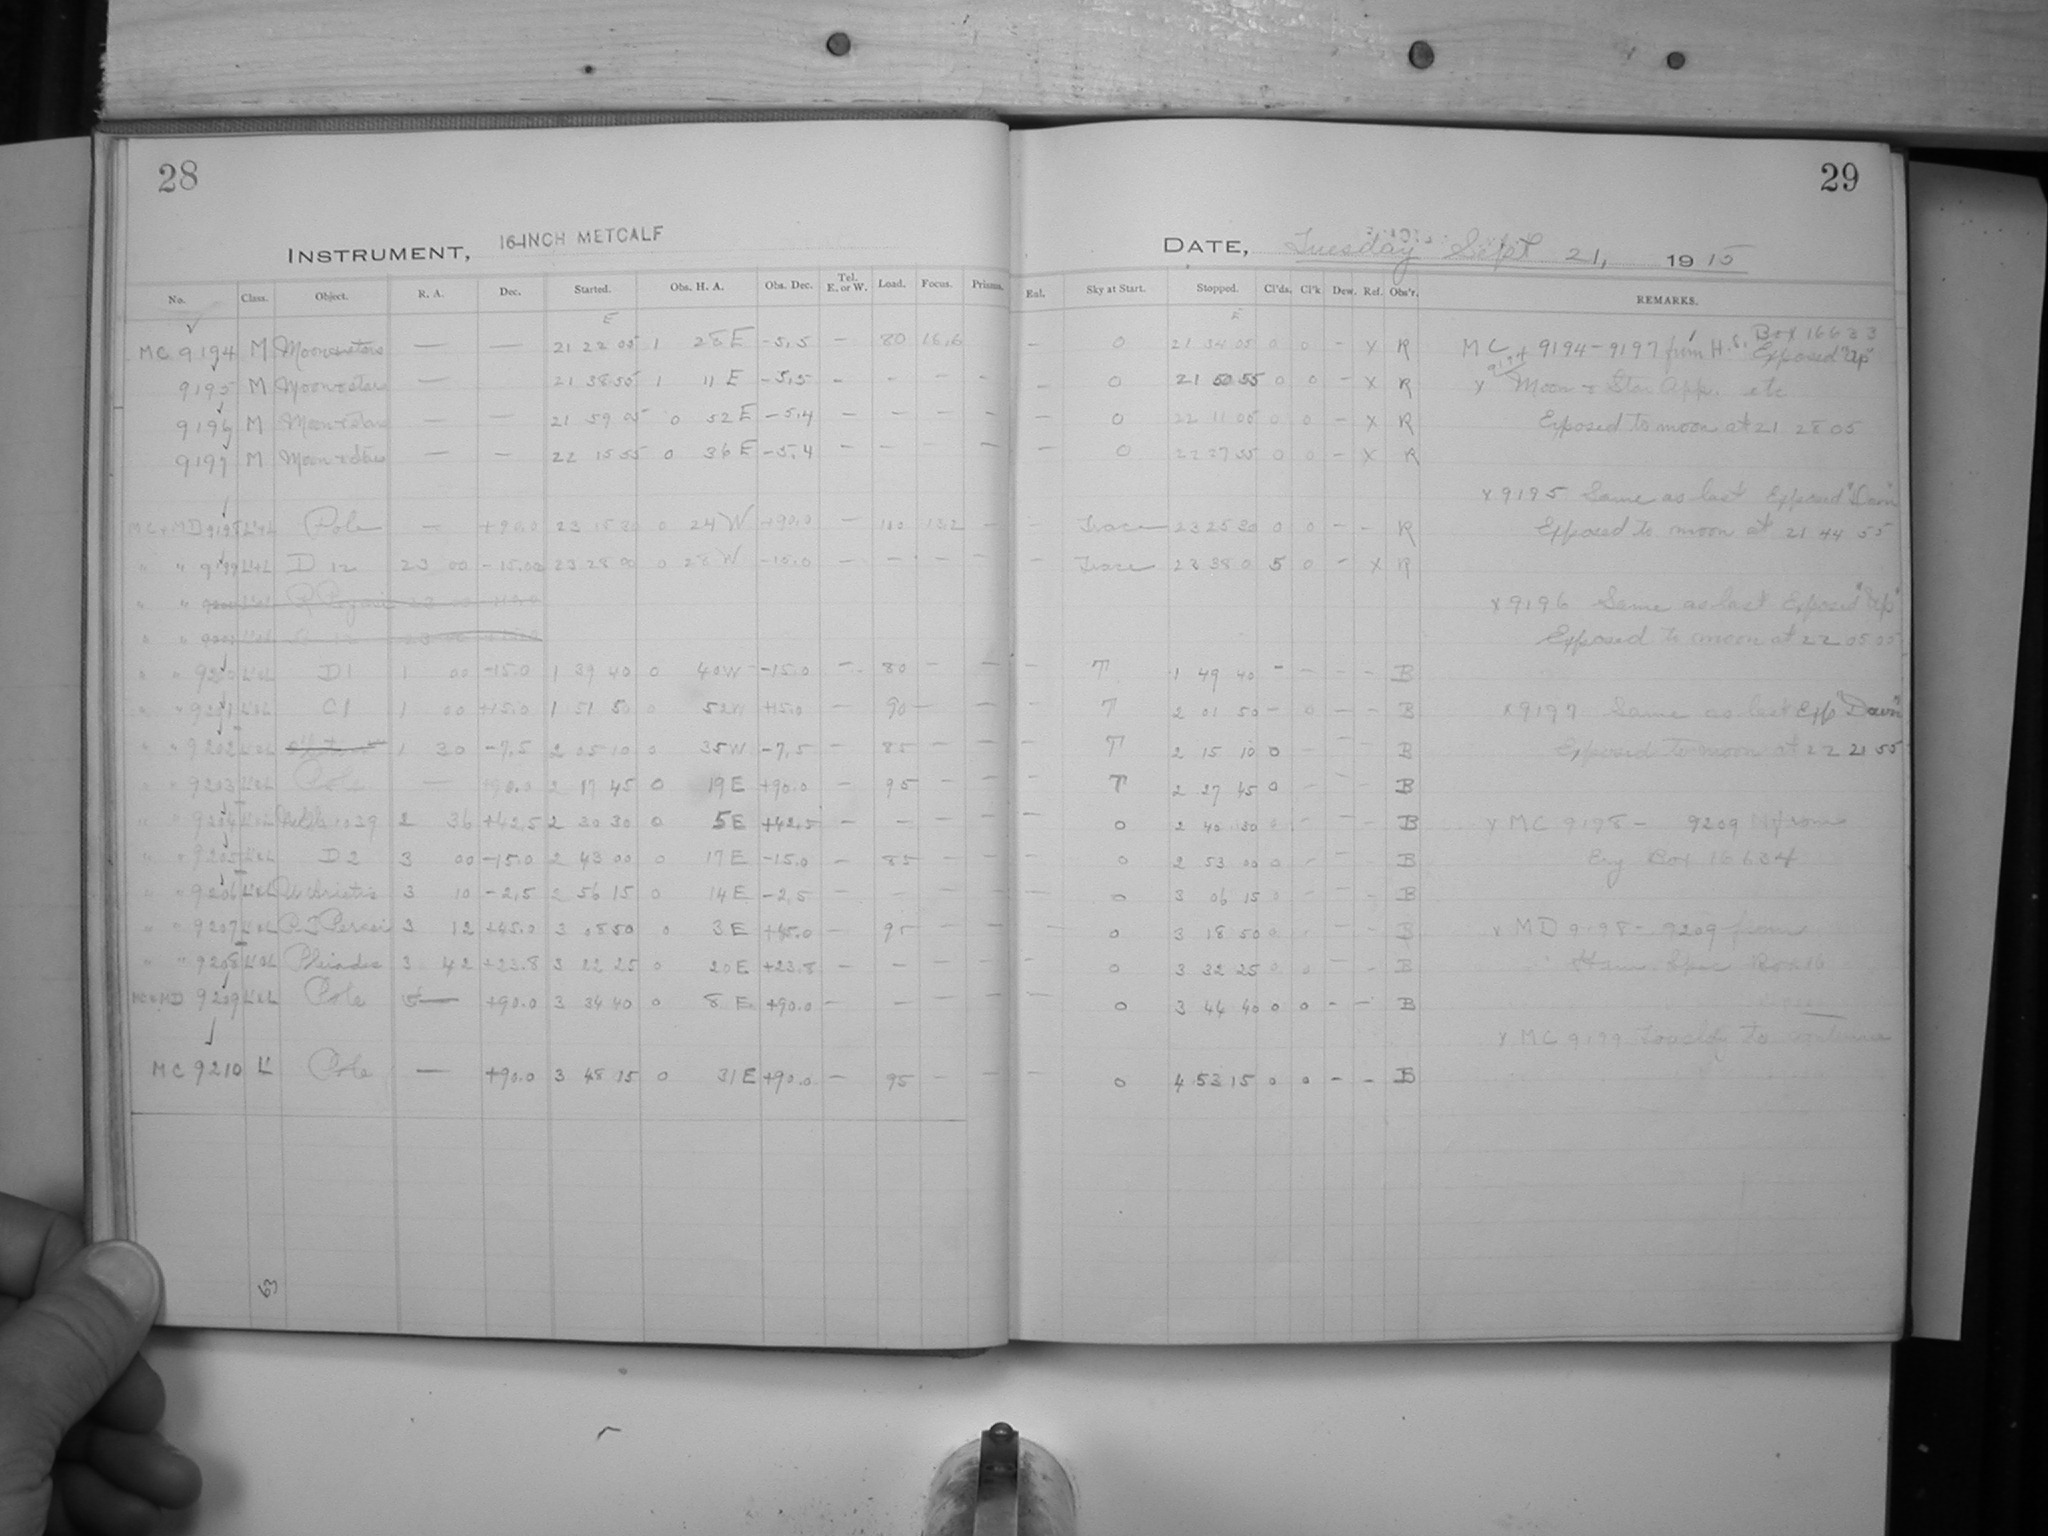 28
INSTRUMENT, 16-INCH METCALF
No. Class. Object. R. A. Dec. Started. Obs. H. A. Obs. Dec. Tel. E. or W. Load. Focus. Prisms.
E
MC 9194 M Moon & stars — — 21 22 05 1 28 E -5.5 — 80
9195 M Moon & stars — 21 38 55 1 11 E -5.5 - - - -
9196 M Moon & stars — — 21 59 05 0 52 E -5.4 — — — —
9197 M Moon & stars — — 22 15 55 0 36 E -5.4 — — — —
MC+MD 9198 L'&L Pole — +90.0 23 15 30 0 24 W +90.0 — 110 —
" " 9199 L'&L D 12 23 00 -15.00 23 28 00 0 28 W -15.0 — — — —
" "
" "
" " 9200 L'&L D1 1 00 -15.0 1 39 40 0 40 W -15.0 — 80 — —
" " 9201 L'&L C1 1 00 +15.0 1 51 50 0 52 W +15.0 — 90 — —
" " 9202 L'&L 1 30 -7.5 2 05 10 0 35 W -7.5 — 85 — —
" " 9203 L'&L Pole — +90.0 2 17 45 0 19 E +90.0 — 95 — —
" " 9204 L'&L 1039 2 36 +42.5 2 30 30 0 5 E +42.5 — — — —
" " 9205 L'&L D2 3 00 -15.0 2 43 00 0 17 E -15.0 — 85 — —
" " 9206 L'&L 3 10 -2.5 2 56 15 0 14 E -2.5 — — — —
" " 9207 L'&L Persei 3 12 +45.0 3 08 50 0 3 E +45.0 — 95 — —
" " 9208 L'&L Pleiades 3 42 +23.8 3 22 25 0 20 E +23.8 — — — —
MC+MD 9209 L'&L Pole — +90.0 3 34 40 0 8 E +90.0 — — — —
MC 9210 L' Pole — +90.0 3 48 15 0 31 E +90.0 — 95 — —
63
29
DATE, Tuesday Sept 21, 1915
Eul. Sky at Start. Stopped. Cl'ds. Cl'k Dew. Ref. Obs'r. REMARKS.
E
— 0 21 34 05 0 0 — X R MC 9194-9197 from H.S. Box 16633 Exposed "Up"
— 0 21 50 55 0 0 — X R X 9194 Moon & Star App. etc
— 0 22 11 05 0 0 — X R Exposed to moon at 21 28 05
— 0 22 27 55 0 0 — X R
X 9195 Same as last Exposed "Down"
— Trace 23 25 30 0 0 — — R Exposed to moon at 21 44 55
— Trace 23 38 0 5 0 — X R
X 9196 Same as last Exposed "Up"
Exposed to moon at 22 05 05
— T 1 49 40 — — — — B
— T 2 01 50 — 0 — — B X 9197 Same as last Exp "Down"
— T 2 15 10 0 — — — B Exposed to moon at 22 21 55
— T 2 27 45 0 — — — B
— 0 2 40 30 0 — — — B X MC 9198 - 9209 from
— 0 2 53 00 0 — — — B Box 16634
— 0 3 06 15 0 — — — B
— 0 3 18 50 0 — — — B X MD 9198 - 9209 from
— 0 3 32 25 0 0 — — B
— 0 3 44 40 0 0 — — B
X MC 9199
— 0 4 53 15 0 0 — — B